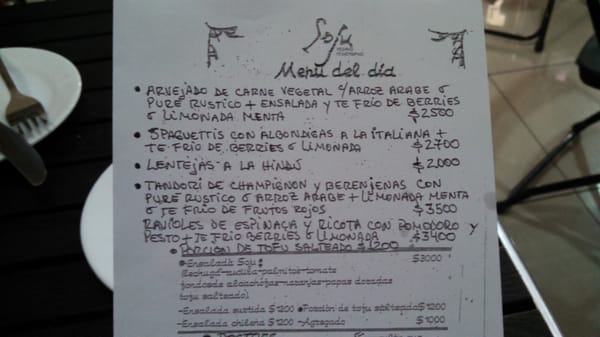 Soju
Menú del día
• ARVEJADO DE CARNE VEGETAL c/ARROZ ARABE o
PURE RUSTICO + ENSALADA Y TE FRÍO DE BERRIES
o LIMONADA MENTA $2500
• SPAGUETTIS CON ALBONDIGAS A LA ITALIANA +
TE FRÍO DE BERRIES o LIMONADA $2700
• LENTEJAS A LA HINDÚ $2000
• TANDORI DE CHAMPIGNON Y BERENJENAS CON
PURE RUSTICO o ARROZ ARABE + LIMONADA MENTA
o TE FRÍO DE FRUTOS ROJOS $3500
RAVIOLES DE ESPINACA Y RICOTA CON POMODORO Y
PESTO + TE FRÍO BERRIES o LIMONADA $3400
• PORCION DE TOFU SALTEADO $1200
•Ensalada Soju: $3000
(lechuga-rucula-palmitos-tomate
fondosde alcachofas-naranjas-papas doradas
tofu salteado)
-Ensalada surtida $1200 •Porción de tofu salteado $1200
-Ensalada chilena $1200 -Agregado $1000